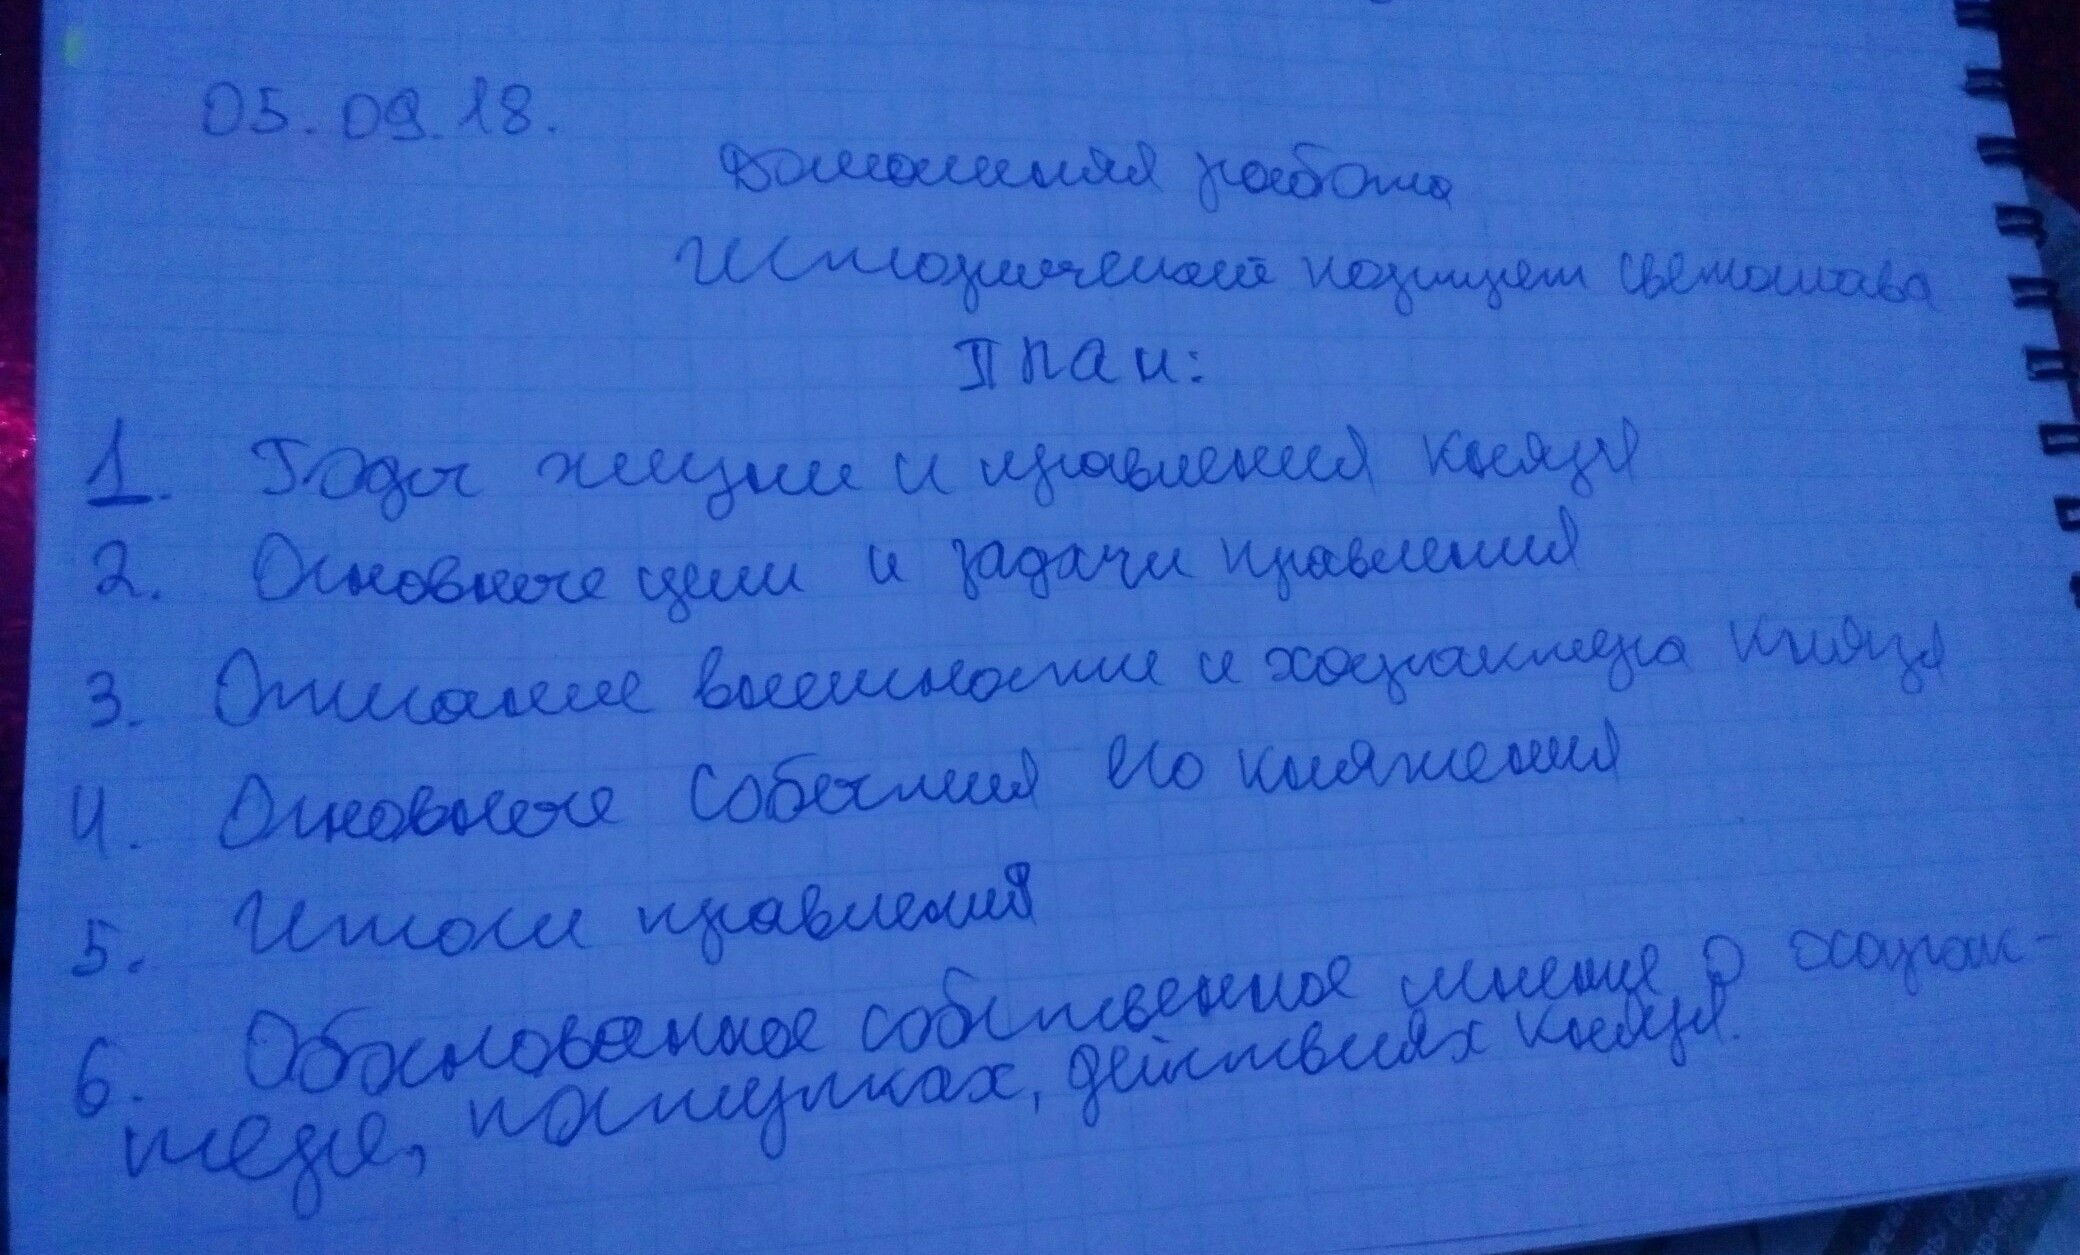 05.09.18.
Домашняя работа
Исторический портрет Светослава
План:
1. Годы жизни и правления князя
2. Основные цели и задачи правления
3. Описание внешности и характера князя
4. Основные события его княжения
5. Итоги правления
6. Обоснованное собственное мнение о харак-
тере, поступках, действиях князя.